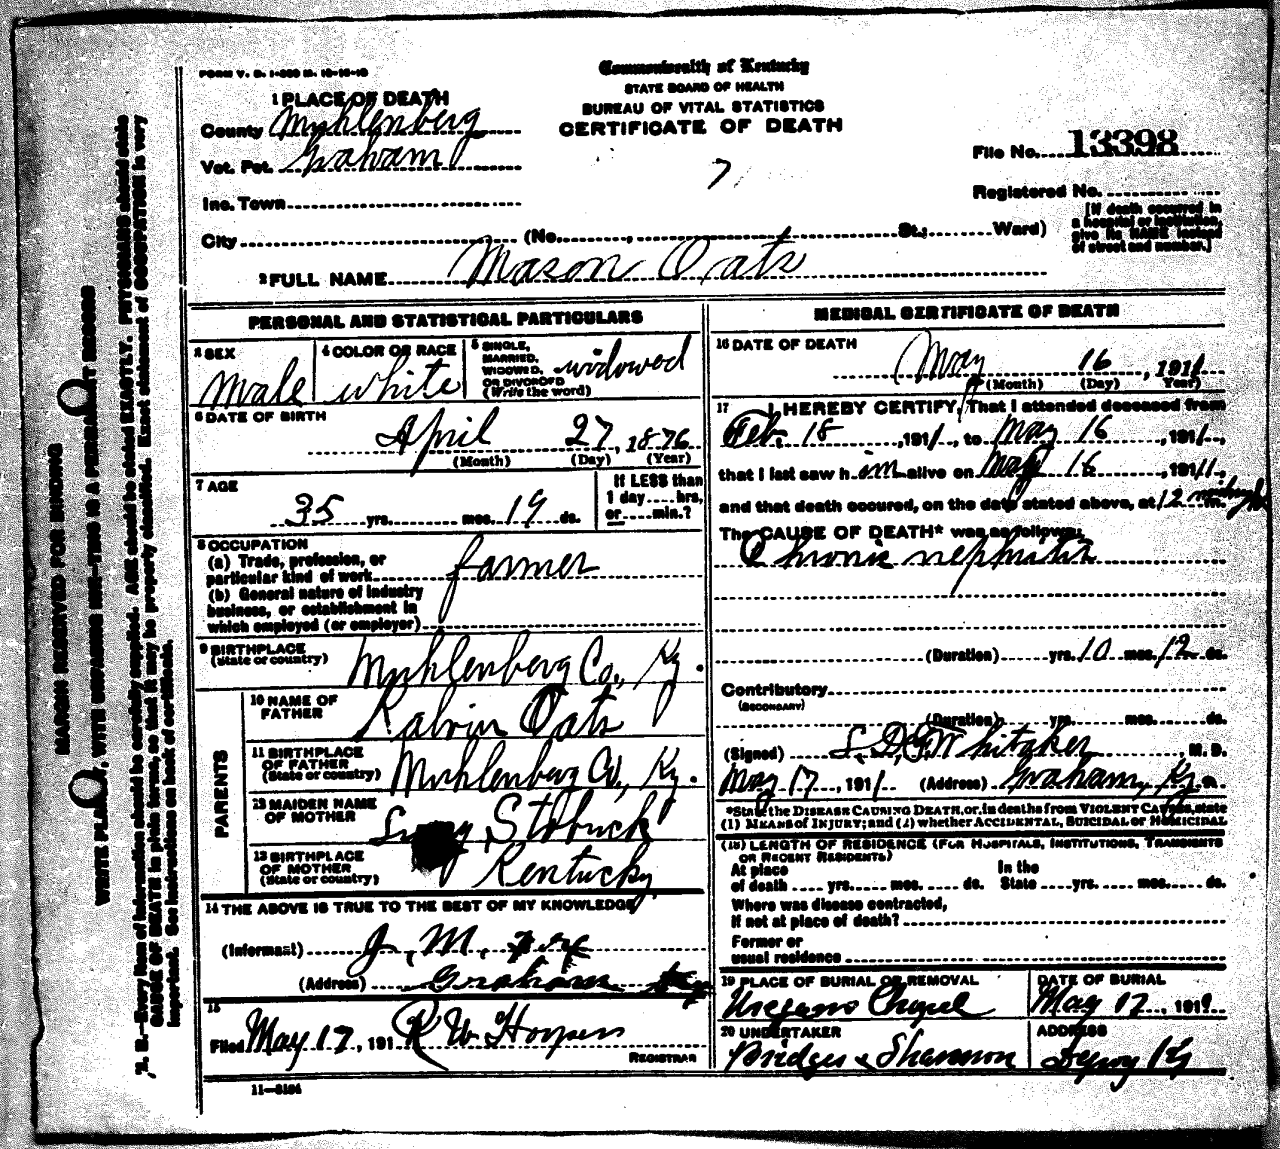 FORM V. S. 1-
Commonwealth of Kentucky
STATE BOARD OF HEALTH
BUREAU OF VITAL STATISTICS
CERTIFICATE OF DEATH
1 PLACE OF DEATH
County Muhlenberg
Vot. Pct. Graham
Inc. Town
City (No. , St.; Ward)
File No. 13398
Registered No.
[If death occurred in
a hospital or institution,
give its NAME instead
of street and number.]
7
2 FULL NAME Mason Oats
PERSONAL AND STATISTICAL PARTICULARS
3 SEX
Male
4 COLOR OR RACE
white
5 SINGLE,
MARRIED,
WIDOWED,
OR DIVORCED
(Write the word)
widowed
6 DATE OF BIRTH
April 27, 1876
(Month) (Day) (Year)
7 AGE
35 yrs. mos. 19 ds.
If LESS than
1 day hrs,
or min.?
8 OCCUPATION
(a) Trade, profession, or
particular kind of work farmer
(b) General nature of industry
business, or establishment in
which employed (or employer)
9 BIRTHPLACE
(State or country) Muhlenberg Co., Ky.
PARENTS
10 NAME OF
FATHER Kalvin Oats
11 BIRTHPLACE
OF FATHER
(State or country) Muhlenberg Co., Ky.
12 MAIDEN NAME
OF MOTHER
13 BIRTHPLACE
OF MOTHER
(State or country) Kentucky
14 THE ABOVE IS TRUE TO THE BEST OF MY KNOWLEDGE
(Informant) J. M.
(Address) Graham Ky
15
Filed May 17, 191 R W Hooper
REGISTRAR
11-3184
MEDICAL CERTIFICATE OF DEATH
16 DATE OF DEATH
May 16, 1911
(Month) (Day) Year)
17 I HEREBY CERTIFY, That I attended deceased from
Feb. 18, 1911, to May 16, 1911,
that I last saw him alive on May 16, 1911,
and that death occured, on the date stated above, at 12 m.
The CAUSE OF DEATH* was as follows:
Chronic nephritis
(Duration) yrs. 10 mos. 12 ds.
Contributory
(SECONDARY)
(Duration) yrs. mos. ds.
(Signed) Whitaker, M. D.
May 17, 1911 (Address) Graham, Ky.
*State the DISEASE CAUSING DEATH, or, in deaths from VIOLENT CAUSES, state
(1) MEANS of INJURY; and (2) whether ACCIDENTAL, SUICIDAL or HOMICIDAL
(18) LENGTH OF RESIDENCE (FOR HOSPITALS, INSTITUTIONS, TRANSIENTS
OR RECENT RESIDENTS)
At place
of death yrs. mos. ds.
In the
State yrs. mos. ds.
Where was disease contracted,
if not at place of death?
Former or
usual residence
19 PLACE OF BURIAL OR REMOVAL
Chapel
DATE OF BURIAL
May 17, 1911
20 UNDERTAKER
Bridges & Shannon
ADDRESS
Ky
MARGIN RESERVED FOR BINDING
WRITE PLAINLY, WITH UNFADING INK—THIS IS A PERMANENT RECORD
N. B.—Every item of information should be carefully supplied. AGE should be stated EXACTLY. PHYSICIANS should state
CAUSE OF DEATH in plain terms, so that it may be properly classified. Exact statement of OCCUPATION is very
important. See instructions on back of certificate.